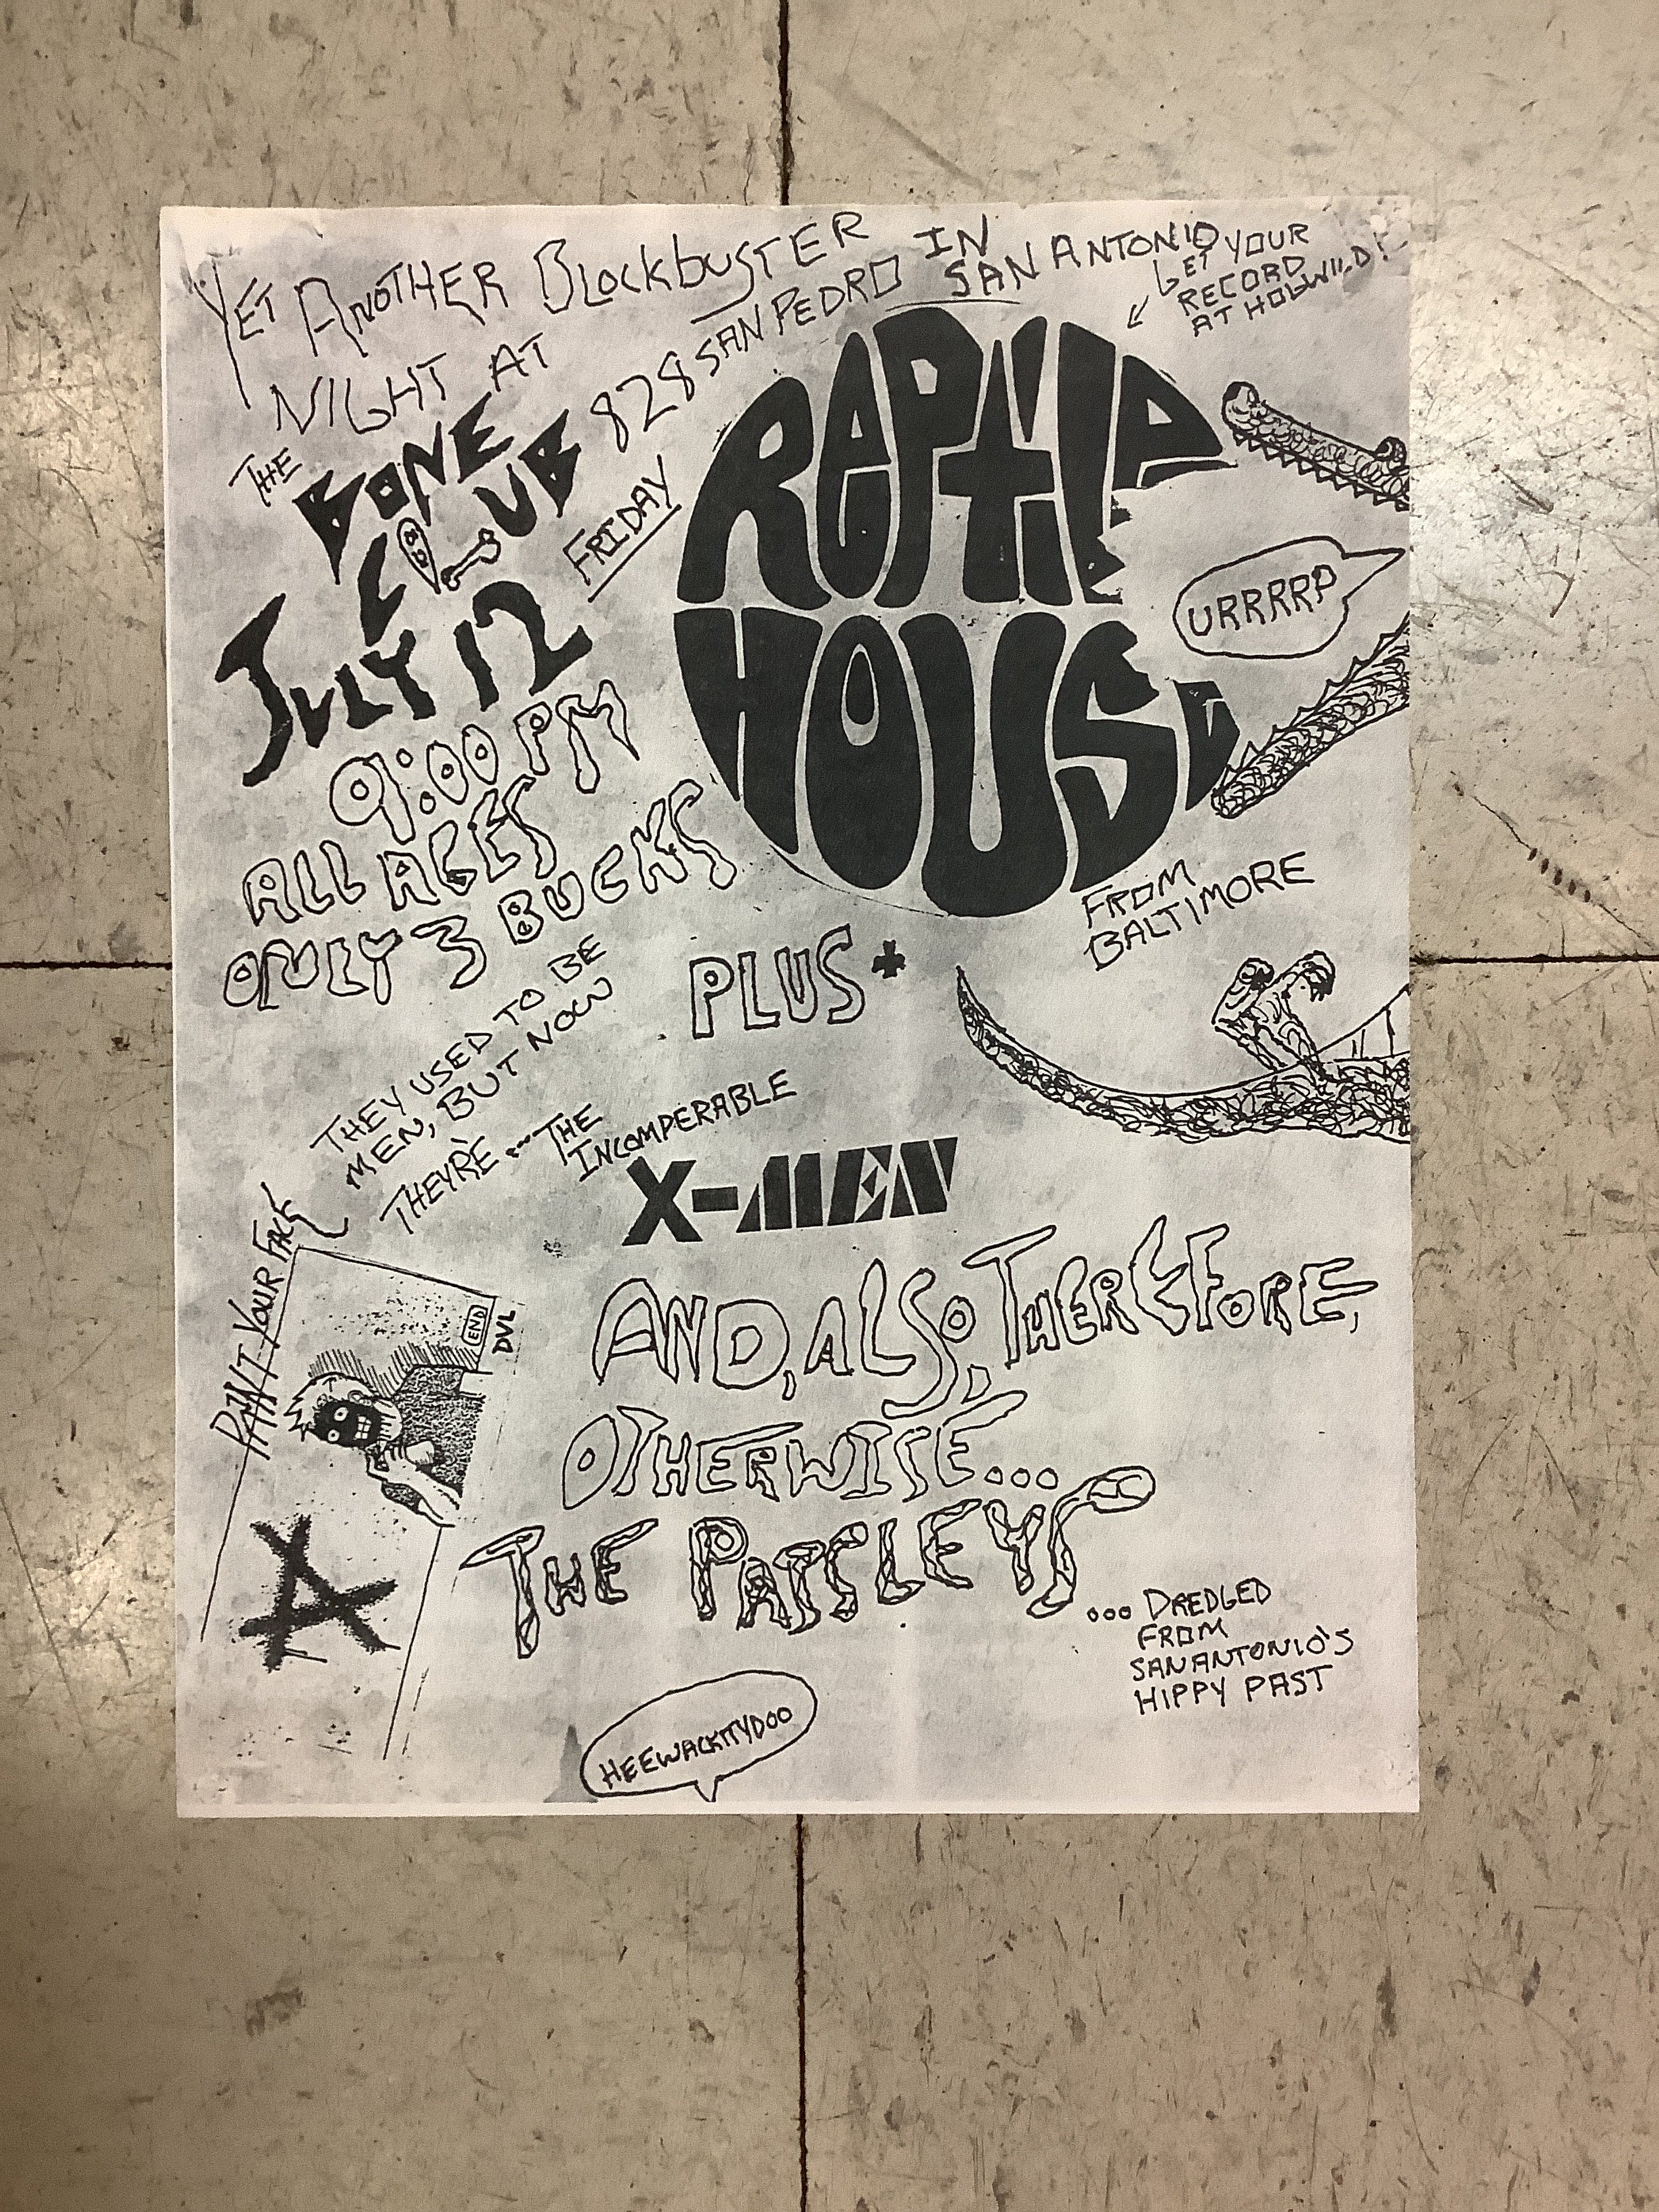 YET ANOTHER BLOCKBUSTER
NIGHT AT
THE
BONE
CLUB
828 SAN PEDRO IN
SAN ANTONIO
GET YOUR
RECORD
AT HOGWILD!
FRIDAY
JULY 12
9:00 PM
ALL AGES
ONLY 3 BUCKS
REPTILE
HOUSE
URRRRP
FROM
BALTIMORE
PLUS+
THEY USED TO BE
MEN, BUT NOW
THEY'RE...THE
INCOMPERABLE
X-MEN
PAINT YOUR FACE
END
DVL
AND, ALSO, THEREFORE,
OTHERWISE...
THE PAISLEYS
...DREDGED
FROM
SAN ANTONIO'S
HIPPY PAST
HEEWACKITYDOO